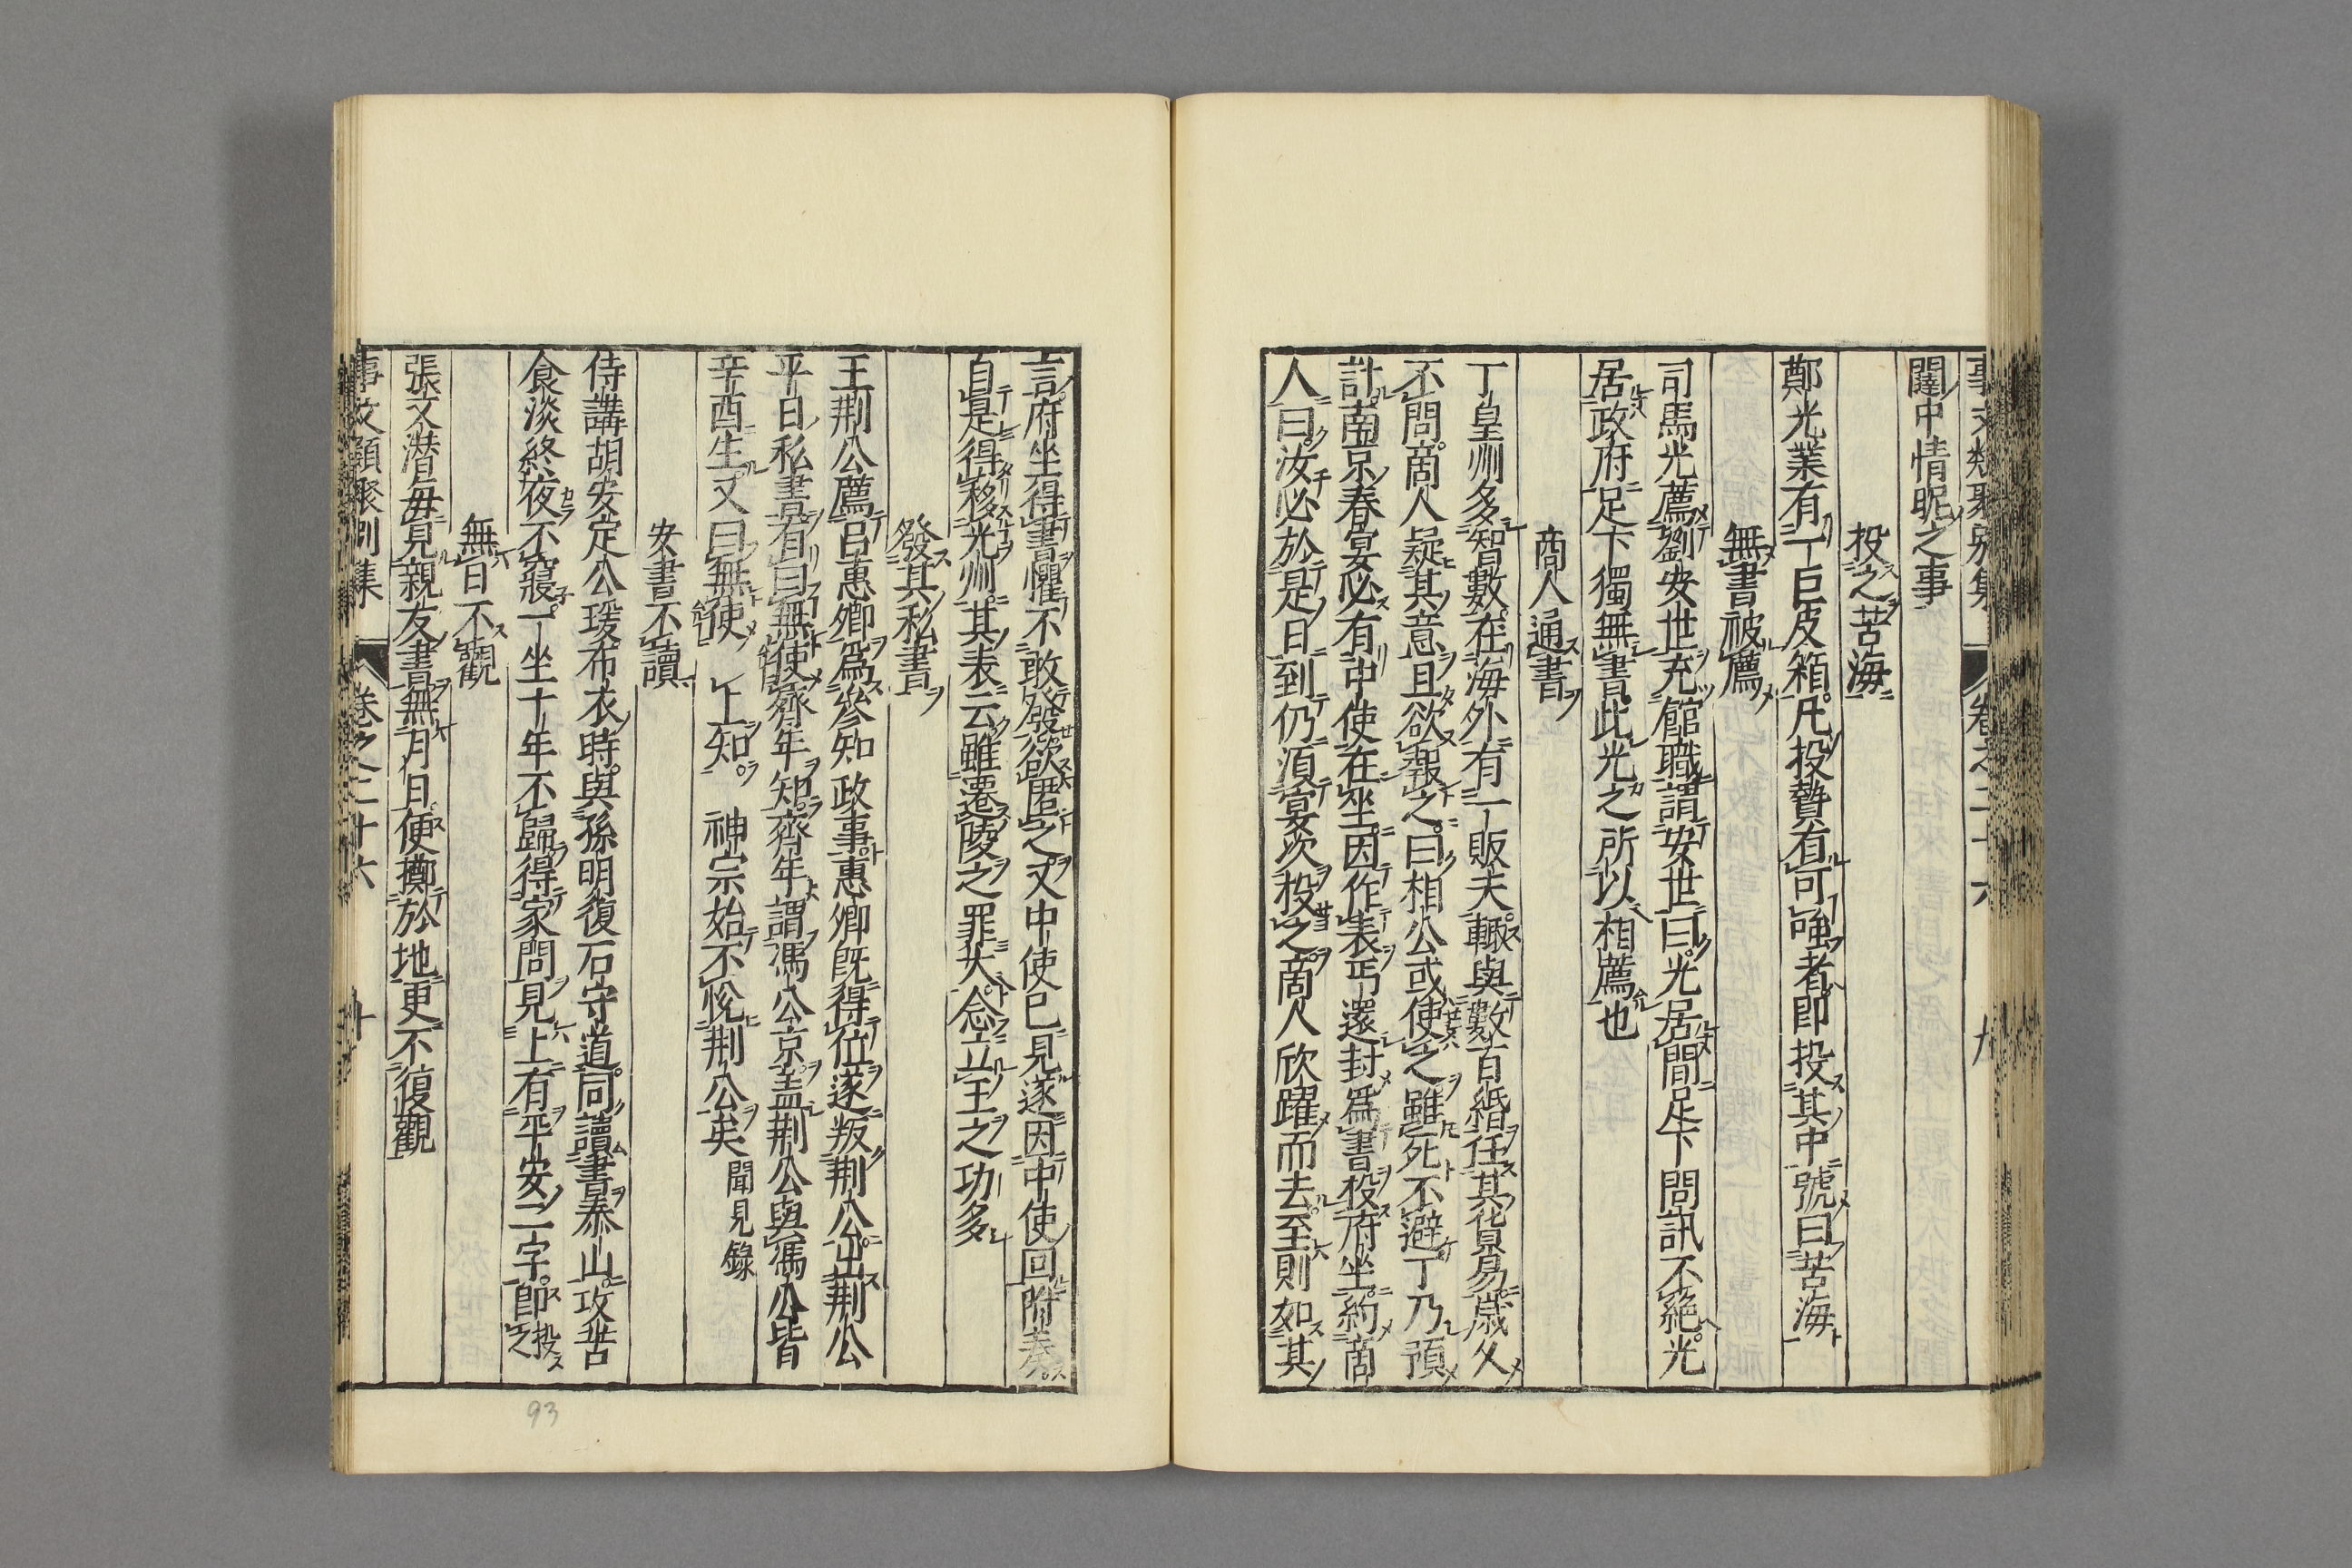 事文類聚別集 卷之二十六 九
闥中情昵之事
投之苦海
鄭光業有一巨皮箱凡投贄有可強者即投其中號曰苦海
無書被薦
司馬光薦劉安世充館職謂安世曰光居間足下問訊不絕光
居政府足下獨無書此光之所以相薦也
商人通書
丁皇州多智數在海外有一販夫輙與數百緡任其貨易歲久
不問商人疑其意且欲報之曰相公或使之雖死不避丁乃預
計南京春宴必有中使在坐因作表丐還封爲書投府坐約商
人曰汝必於是日到仍須宴次投之商人欣躍而去至則如其
言府坐得書懼不敢發欲匿之又中使已見遂因中使回附奏
自是得移光州其表云雖遷陵之罪大念立主之功多
發其私書
王荆公薦呂惠卿爲參知政事惠卿既得位遂叛荆公出荆公
平日私書有曰無使齊年知齊年謂馮公京盖荆公與馮公皆
辛酉生又曰無使 上知 神宗始不悅荆公矣 聞見錄
安書不讀
侍講胡安定公瑗布衣時與孫明復石守道同讀書泰山攻苦
食淡終夜不寢一坐十年不歸得家問見上有平安二字即投之
無日不觀
張文潜毎見親友書無月日便擲於地更不復觀
事文類聚別集 卷之二十六 十
93